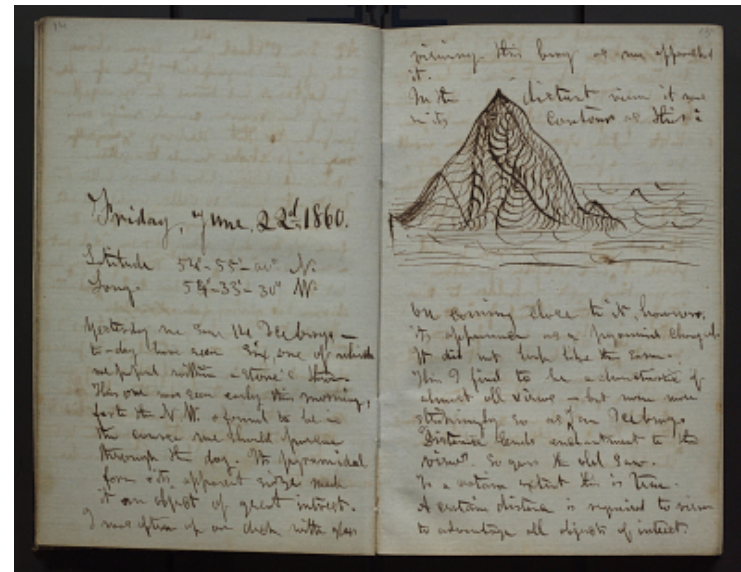 14
Friday, June 22d 1860.
Latitude 54°-55'-00" N.
Long. 54°-33'-30" W
Yesterday we saw the Icebergs —
to-day have seen Six, one of which
we passed within a stone's throw.
This one was seen early this morning,
far to the N.W. & found to be in
the course we should pursue
through the day. Its pyramidal
form & its apparent size made
it an object of great interest.
I was often up on deck with glass
15
viewing this berg as we approached
it.
In the distant view it was
in its contour as this:
On coming close to it, however,
its appearance as a pyramid changed.
It did not look like the same.
This I find to be a characteristic of
almost all views — but more
strikingly so as of an Iceberg.
"Distance lends enchantment to the
view". So goes the old Saw.
To a certain extent this is true.
A certain distance is required to view
to advantage all objects of interest.